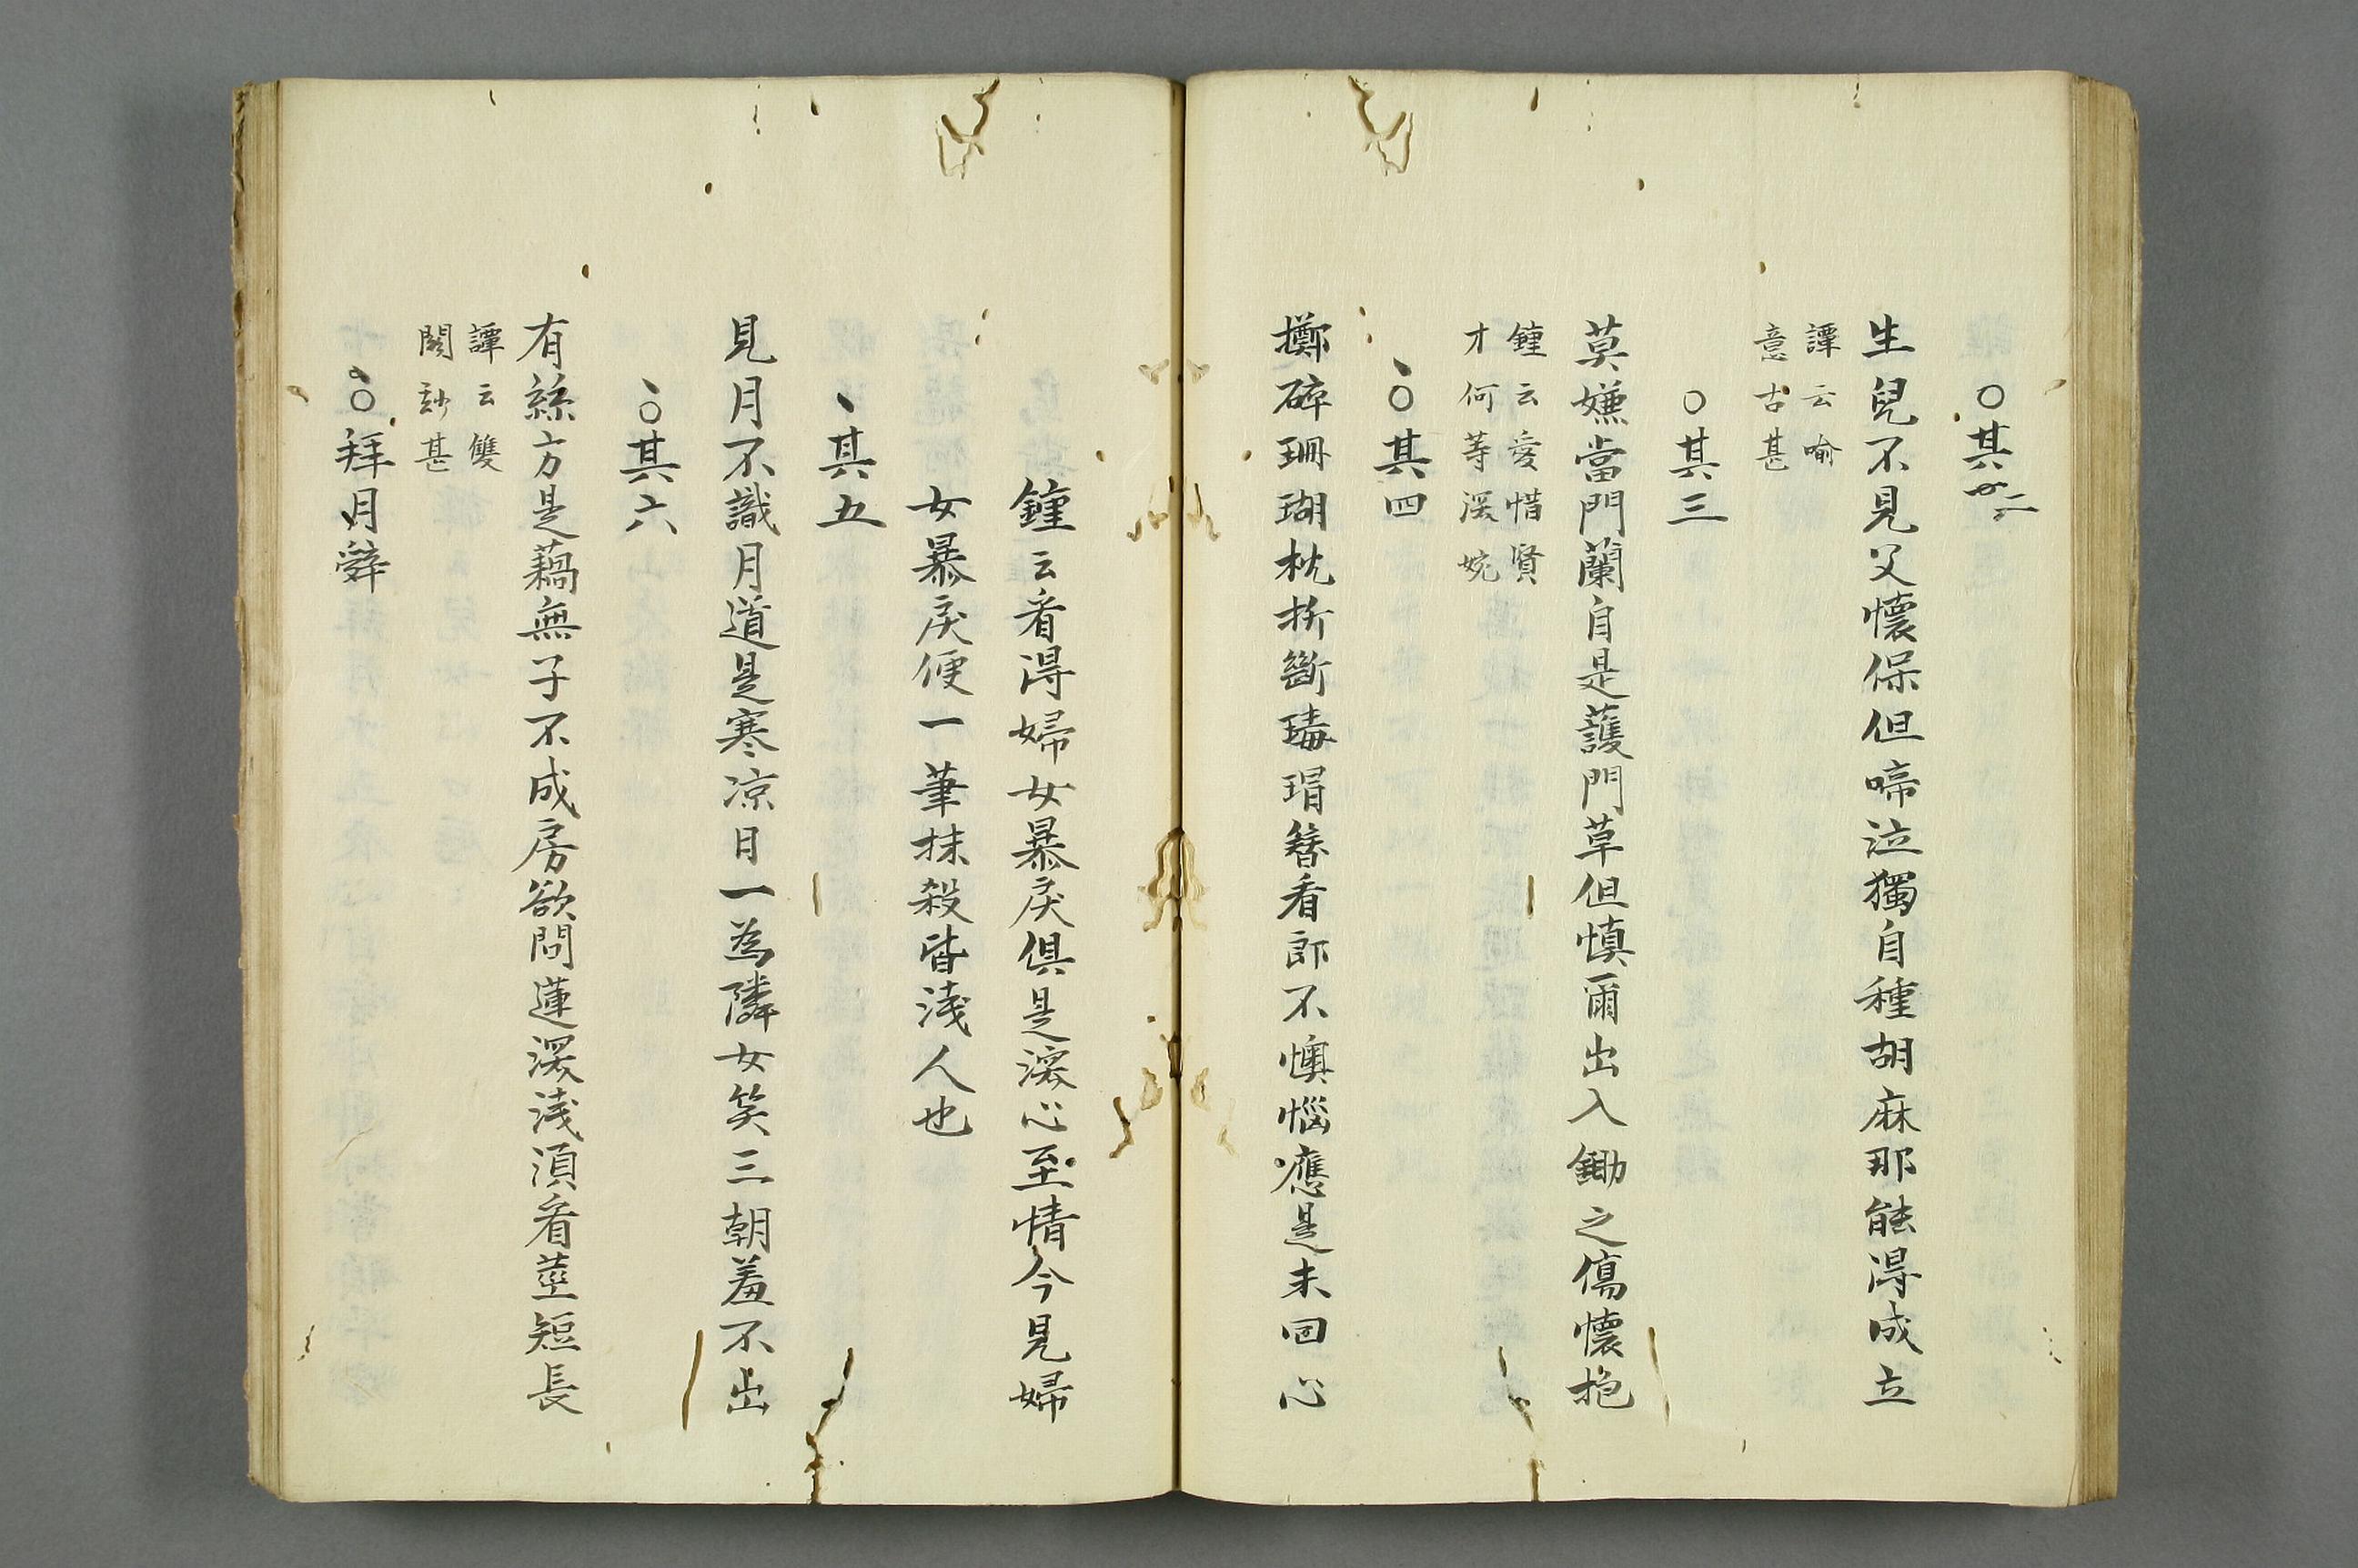 ○其二
生兒不見父懷保但啼泣獨自種胡麻那能得成立
譚云喻
意古甚
○其三
莫嫌當門蘭自是護門草但慎爾出入鋤之傷懷抱
鍾云愛惜賢
才何等深婉
○其四
擲碎珊瑚枕折斷瑇瑁簪看郎不懊惱應是未回心
鍾云看得婦女暴戾俱是深心至情今見婦
女暴戾便一筆抹殺皆淺人也
其五
見月不識月道是寒凉日一為隣女笑三朝羞不出
○其六
有絲方是藕無子不成房欲問蓮深淺須看莖短長
譚云雙
關玅甚
○拜月辤